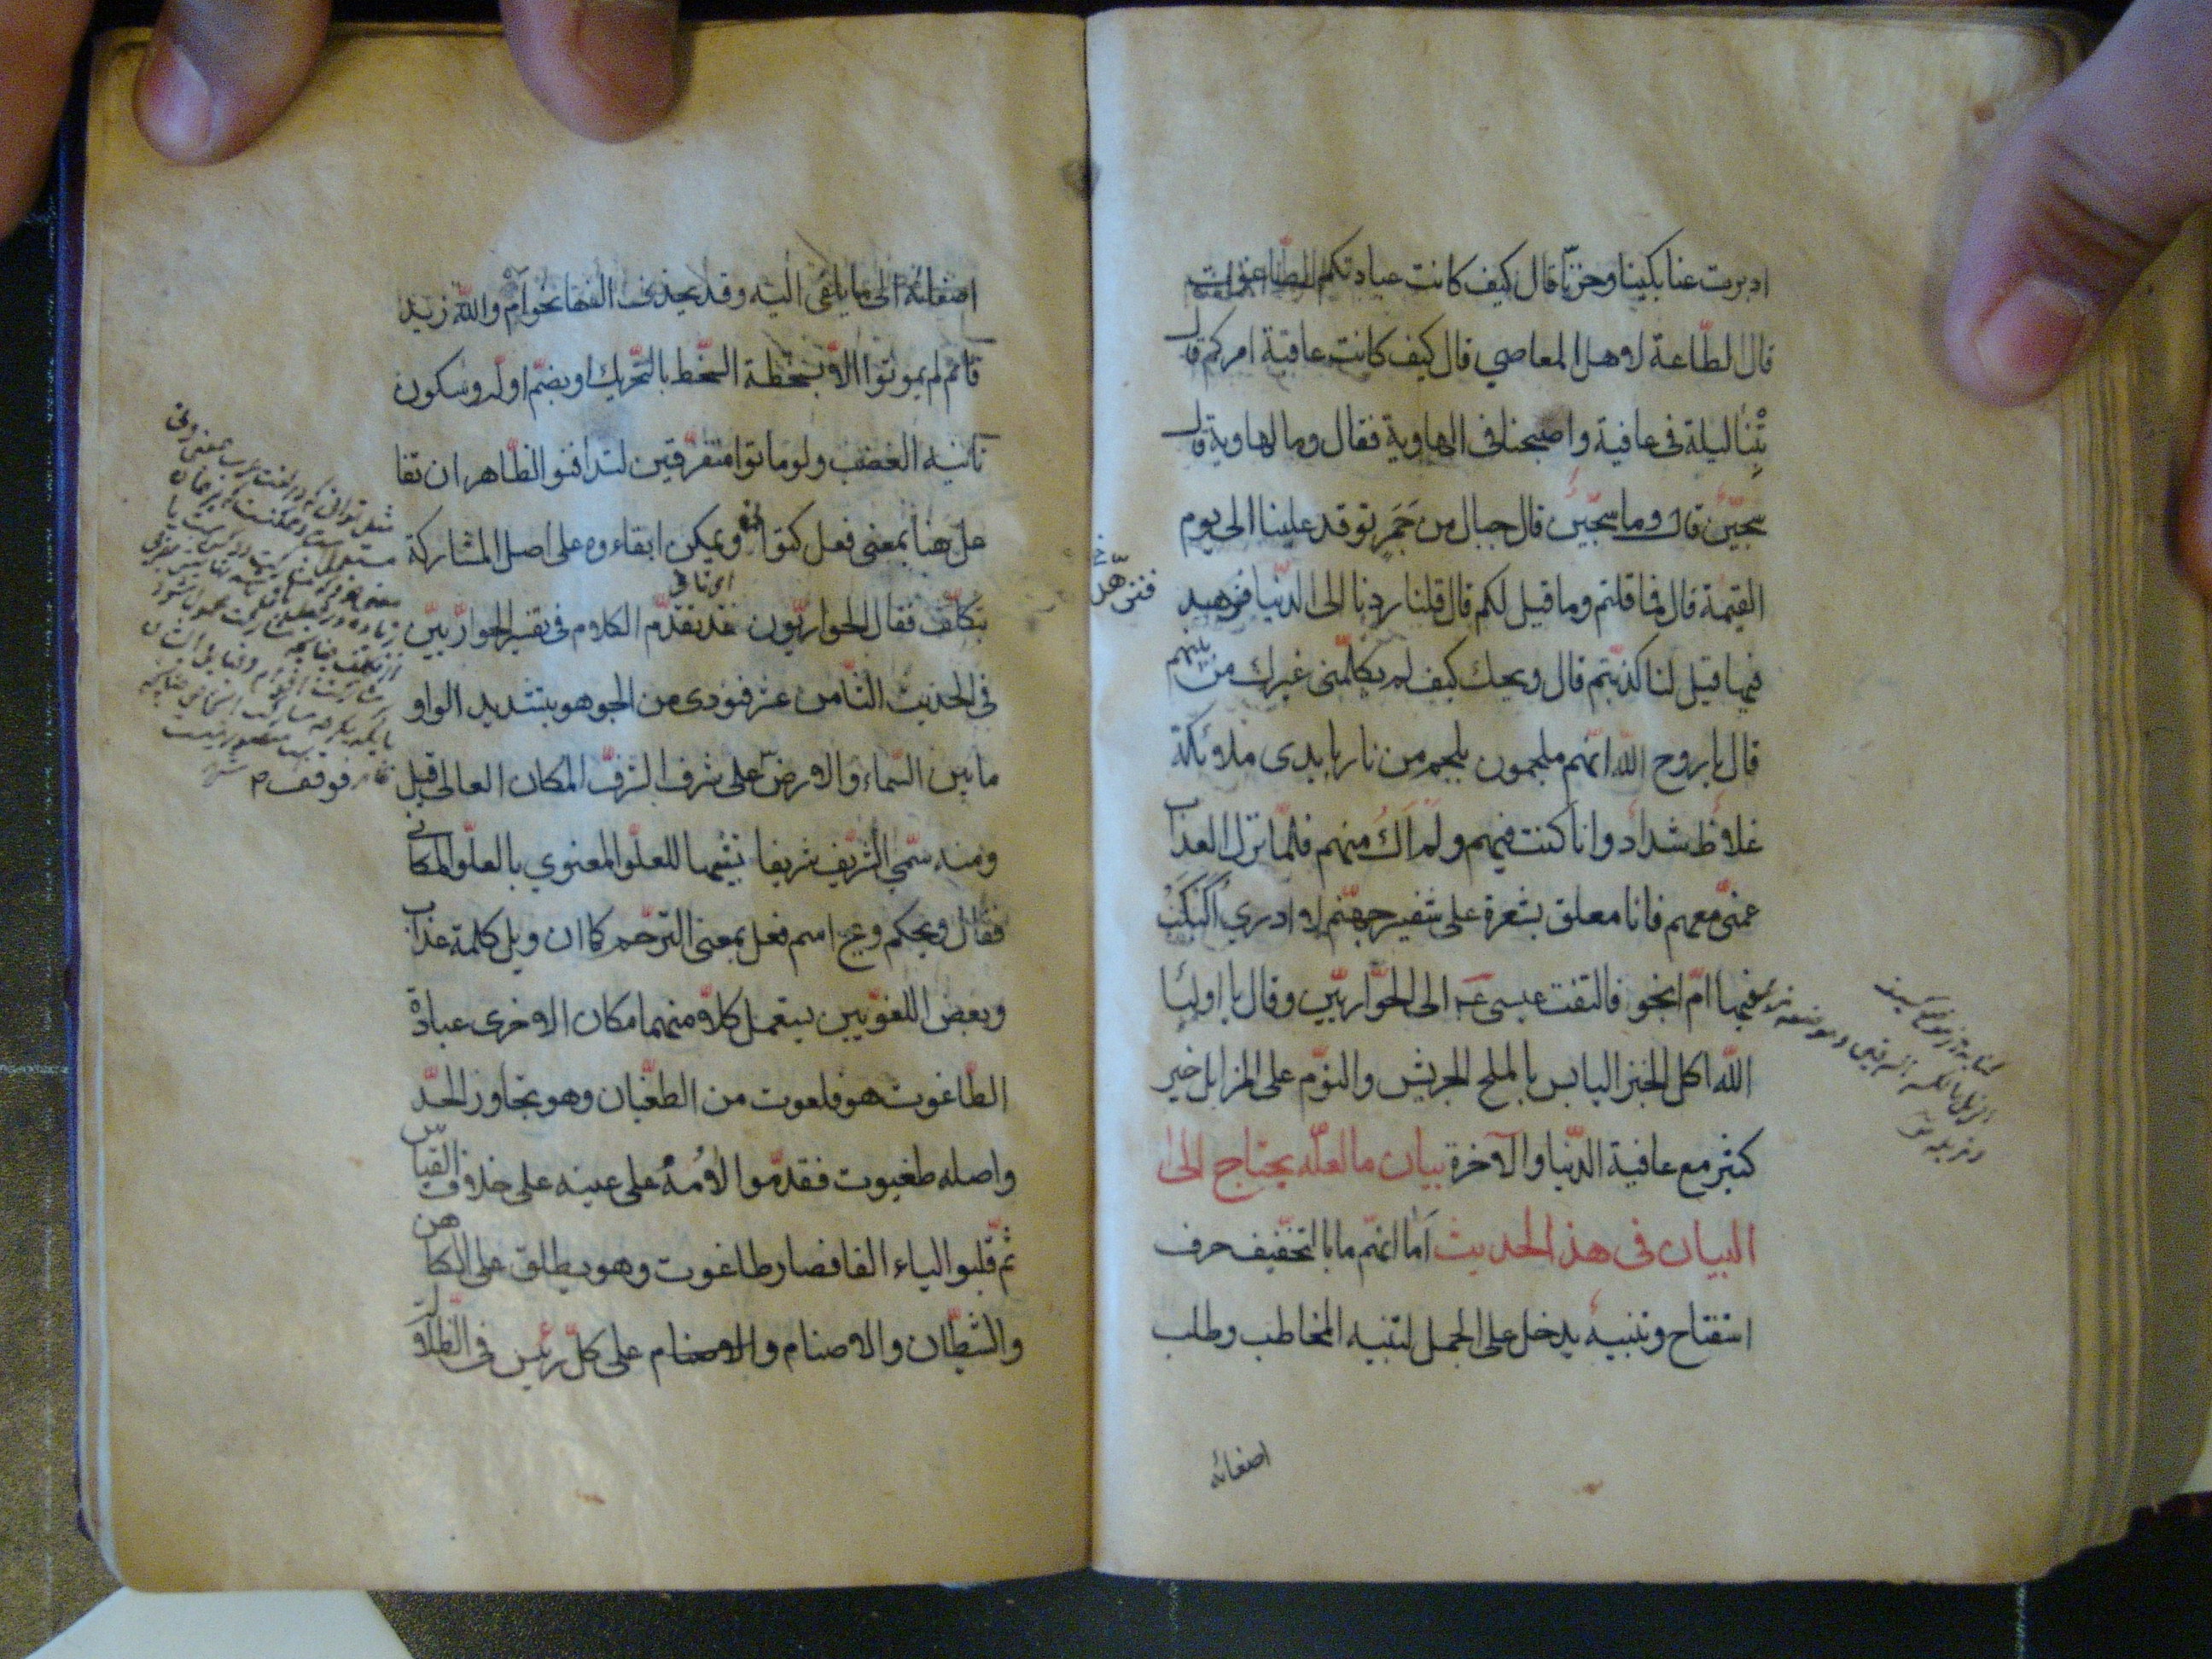 ادبرت عنا بكينا وحزنّا قال كيف كانت عبادتكم للطاغوت
قال الطّاعة لاهل المعاصي قال كيف كانت عاقبة امركم قال
بِتْنا ليلة فى عافية واصبحنا فى الهاوية فقال وما الهاوية قال
سجّين قال وما سجّين قال جبال من جَمَر توقد علينا الى يوم
القيمة قال فما قلتم وما قيل لكم قال قلنا ردنا الى الدّنيا فنزهد
فيها قيل لنا كذبتم قال ويحك كيف لم يكلّمنى غيرك من بينهم
قال يا روح اللّه انّهم ملجمون بلجم من نار بايدى ملائكة
غلاظ شداد وانا كنت فيهم ولم اك منهم فلمّا نزل العذاب
عمّنى معهم فانا معلق بشعرة على شفير جهنّم لا ادري اُكَبْكَبُ
فيها امّ انجو فالتفت عيسى عـ الى الحوّاريّين وقال يا اوليا
اللّه اكل الخبز اليابس بالملح الجريش والنوّم على المزابل خير
كثير مع عافية الدّنيا والآخرة بيان ما لعلّه يحتاج الى
البيان فى هذا الحديث اما انّهم ما بالتخفّيف حرف
استفتاح وتنبيه يدخل على الجمل لتنبيه المخاطب وطلب
اصغائه
فنزهد
اصغائه الى ما يلقى اليه وقد يحذف الفها نحو ام واللّه زيد
قائم لم يموتوا الاّ بسخطة السّخط بالتّحريك او بضمّ اوله وسكون
ثانيه الغضب ولو ماتوا متفرّقين لتدافنوا الظّاهر ان تفا
عل هنا بمعنى فعل كتوانى ويمكن ابقاءوه على اصل المشاركة
بتكلّف فقال الحواريّون قد تقدّم الكلام فى تفسير الحوارّيين
فى الحديث الثّامن عشر فنودى من الجو هو بتشديد الواو
ما بين السّماء والارض على شرف الشّرف المكان العالى قيل
ومنه سمّى الشّريف شريفا تشبيها للعلوّ المعنوي بالعلوّ المكانى
فقال ويحكم ويح اسم فعل بمعنى الترّحم كما ان ويل كلمة عذاب
وبعض اللغوّيين يستعمل كلاّ منهما مكان الاخرى عبادة
الطّاغوت هو فلعوت من الطغّيان وهو تجاوز الحدّ
واصله طغيوت فقدّموا لامُهُ على عينه على خلاف القياس
ثم قلبوا الياء الفا فصار طاغوت وهو يطلق على الكاهن
والشّيطان والاصنام والاصنام على كلّ رئيس فى الظّلا